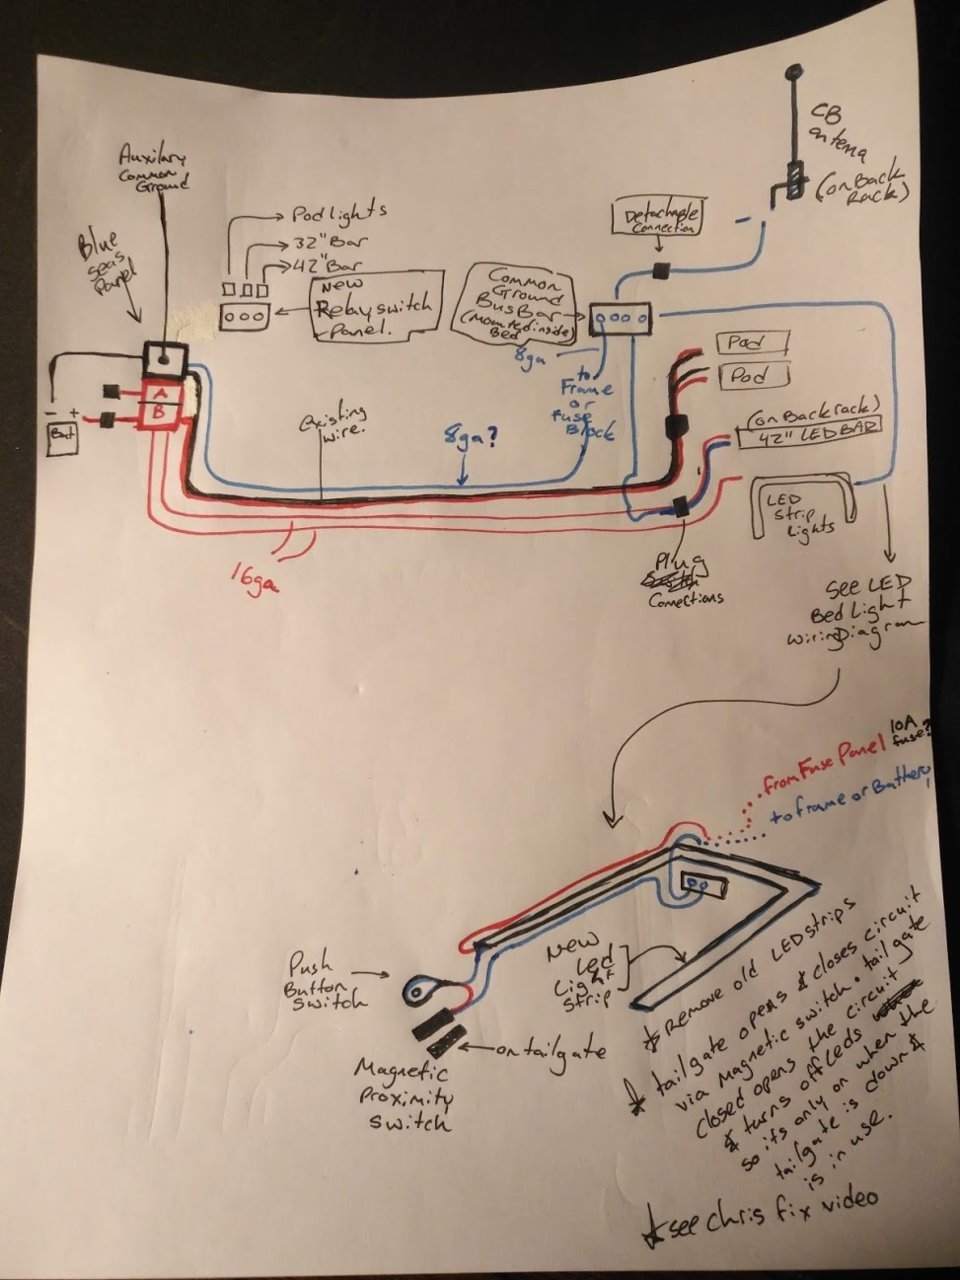 CB
antena
(on Back
Rack)
Auxilary
Common
Ground
Detachable
Connection
Pod Lights
32" Bar
42" Bar
Blue
Seas
Panel
New
Relay switch
Panel.
Common
Ground
Bus Bar
(mounted inside)
Bed
8ga
to
Frame
or
Fuse
Block
Pod
Pod
A
B
- +
Bat
existing
wire.
8ga?
(on Back rack)
42" LED BAR
LED
Strip
Lights
16ga
Plug
Connections
See LED
Bed Light
Wiring Diagram
from Fuse Panel 10A
fuse?
to frame or Battery
New
Led
Light
Strip
Push
Button
Switch
on tailgate
Magnetic
Proximity
Switch
Remove old LED strips
tailgate opens & closes circuit
via magnetic switch. tailgate
closed opens the circuit
& turns off LEDs
so its only on when the
tailgate is down &
is in use.
see Chris fix video